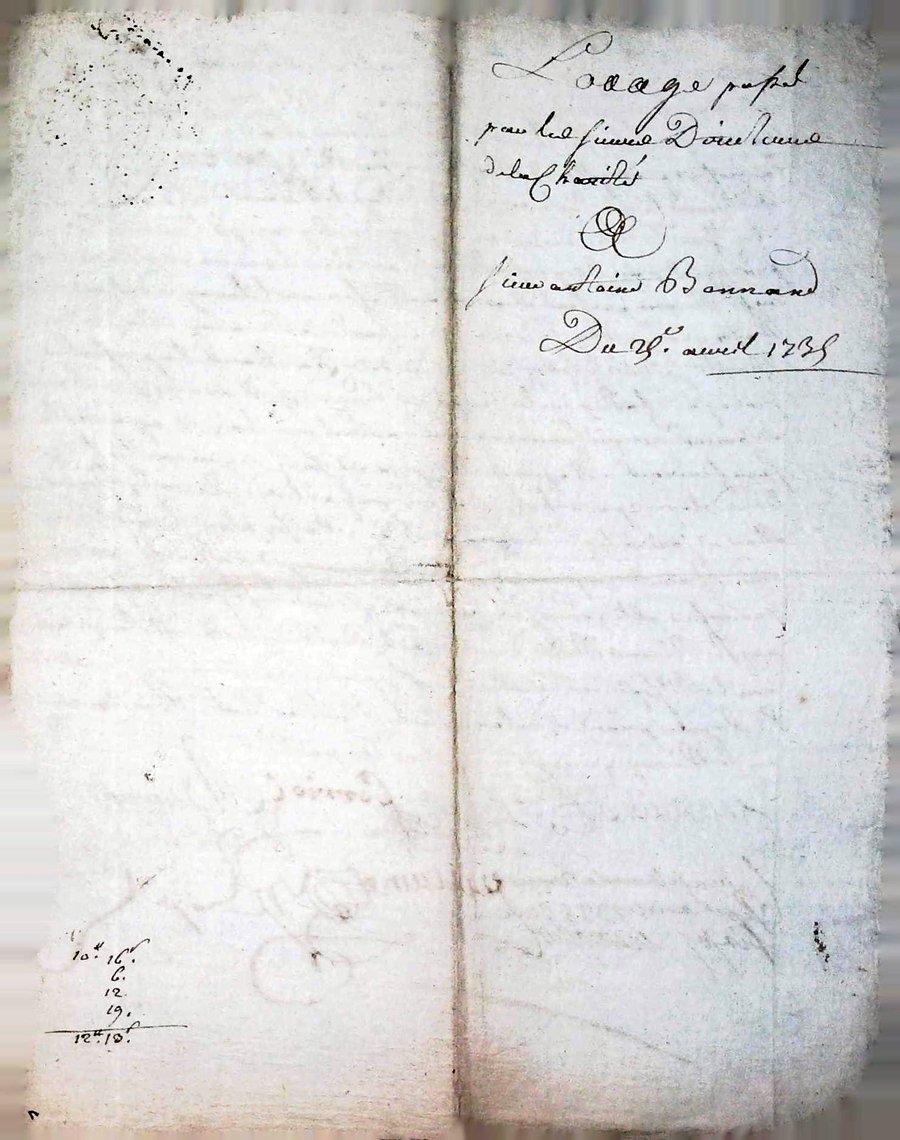 Loüage passé
par les sieurs Directeurs
de la Charité
A
sieur antoine Bonnand
Du 25e. avril 1735
10# 16s.
6.
12
19.
12#. 13s.